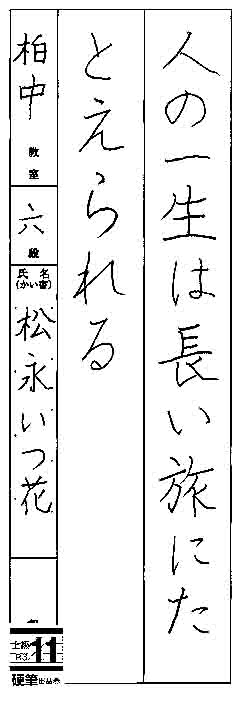 人の一生は長い旅にた
とえられる
柏中 教室
六 段
氏名
(かい書)
松永いつ花
11
硬筆出品券